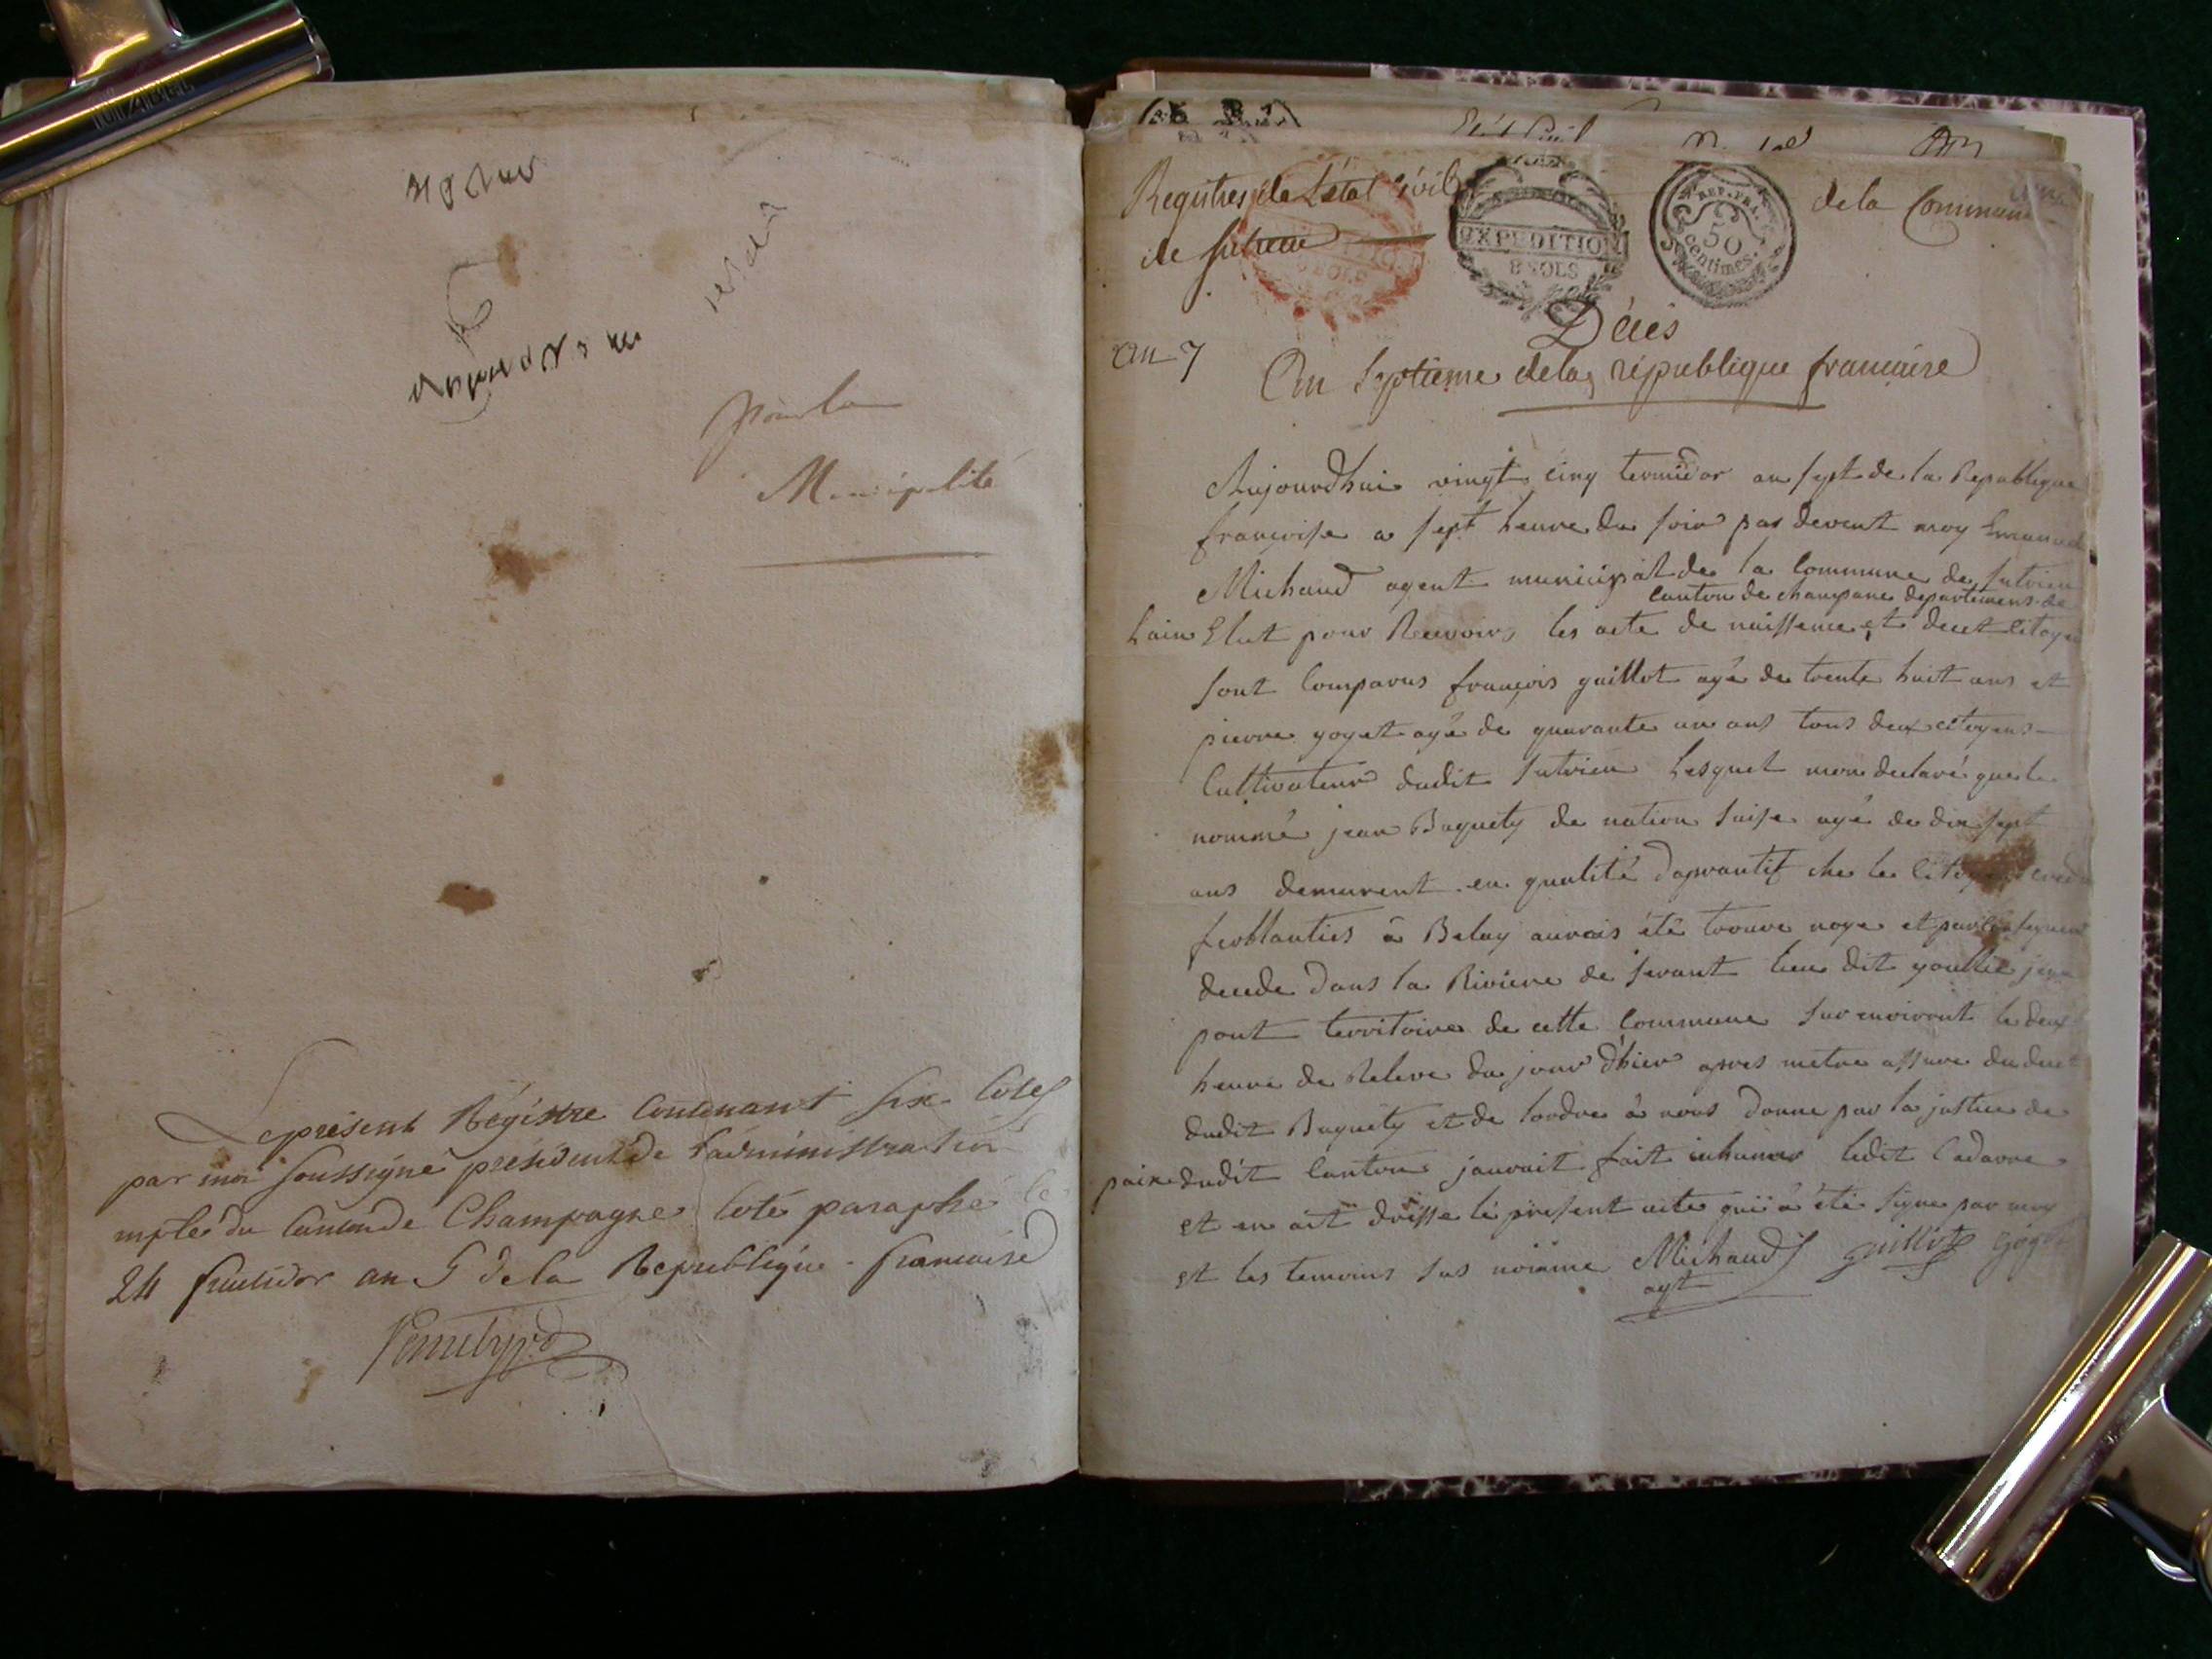 pour la
Municipalité
Le présent Régistre Contenant Six Cotes
par moi Soussigné président de l'administration
mple du Canton de Champagne Coté paraphé le
24 fructidor an 5 de la Republique francaise
Registres de L'état Civil de la Commune
de Sutrieu
EXPEDITION
8 SOLS
REP. FRA.
50
centimes.
Décès
an 7
An Septieme de la république francaise
Aujourdhui vingt cinq termidor an sept de la Republique
francoise a sept heure du soir par devent moy Emanuel
Michaud agent municipal de la Commune de Sutrieu
Canton de champane departement de
Lain Elut pour Recevoir les acte de naissence et decet Citoyen
sont Comparus françois guillot agé de trente huit ans et
pierre goget agé de quarante un ans tous deux citoyens
Cultivateur dudit Sutrieu Lesquel mon declaré que le
nommé jean Buguety de nation Suise agé de dix sept
ans demurent en qualité daprantif che le Citoyen
ferblantier a Belay aurois été trouve noye et par Consequent
decede dans la Riviere de Serant lieu dit
pont territoire de cette Commune sur environt le deux
heure de Releve du jour d'hier apres metre assure du decet
dudit Buguety et de lordre à nous donne par la justice de
paix dudit Canton jaurait fait inhumer ledit Cadavre
et en ait dresse le present acte qui a été signe par moy
et les temoins sus nomme Michaud guillot Goget
agt